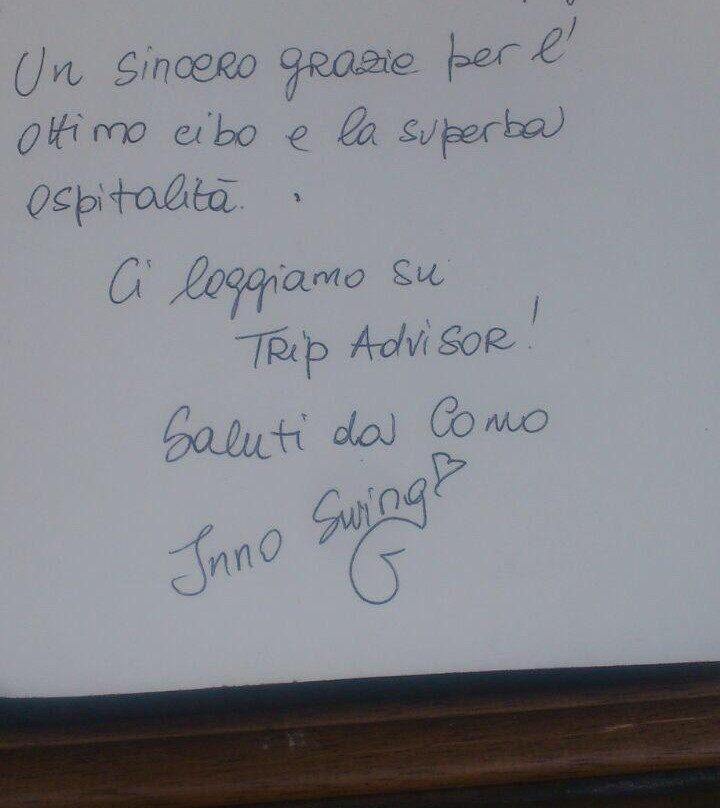 Un sincero grazie per l'
ottimo cibo e la superba
ospitalità.
Ci leggiamo su
Trip Advisor!
Saluti da Como
Inno Swing